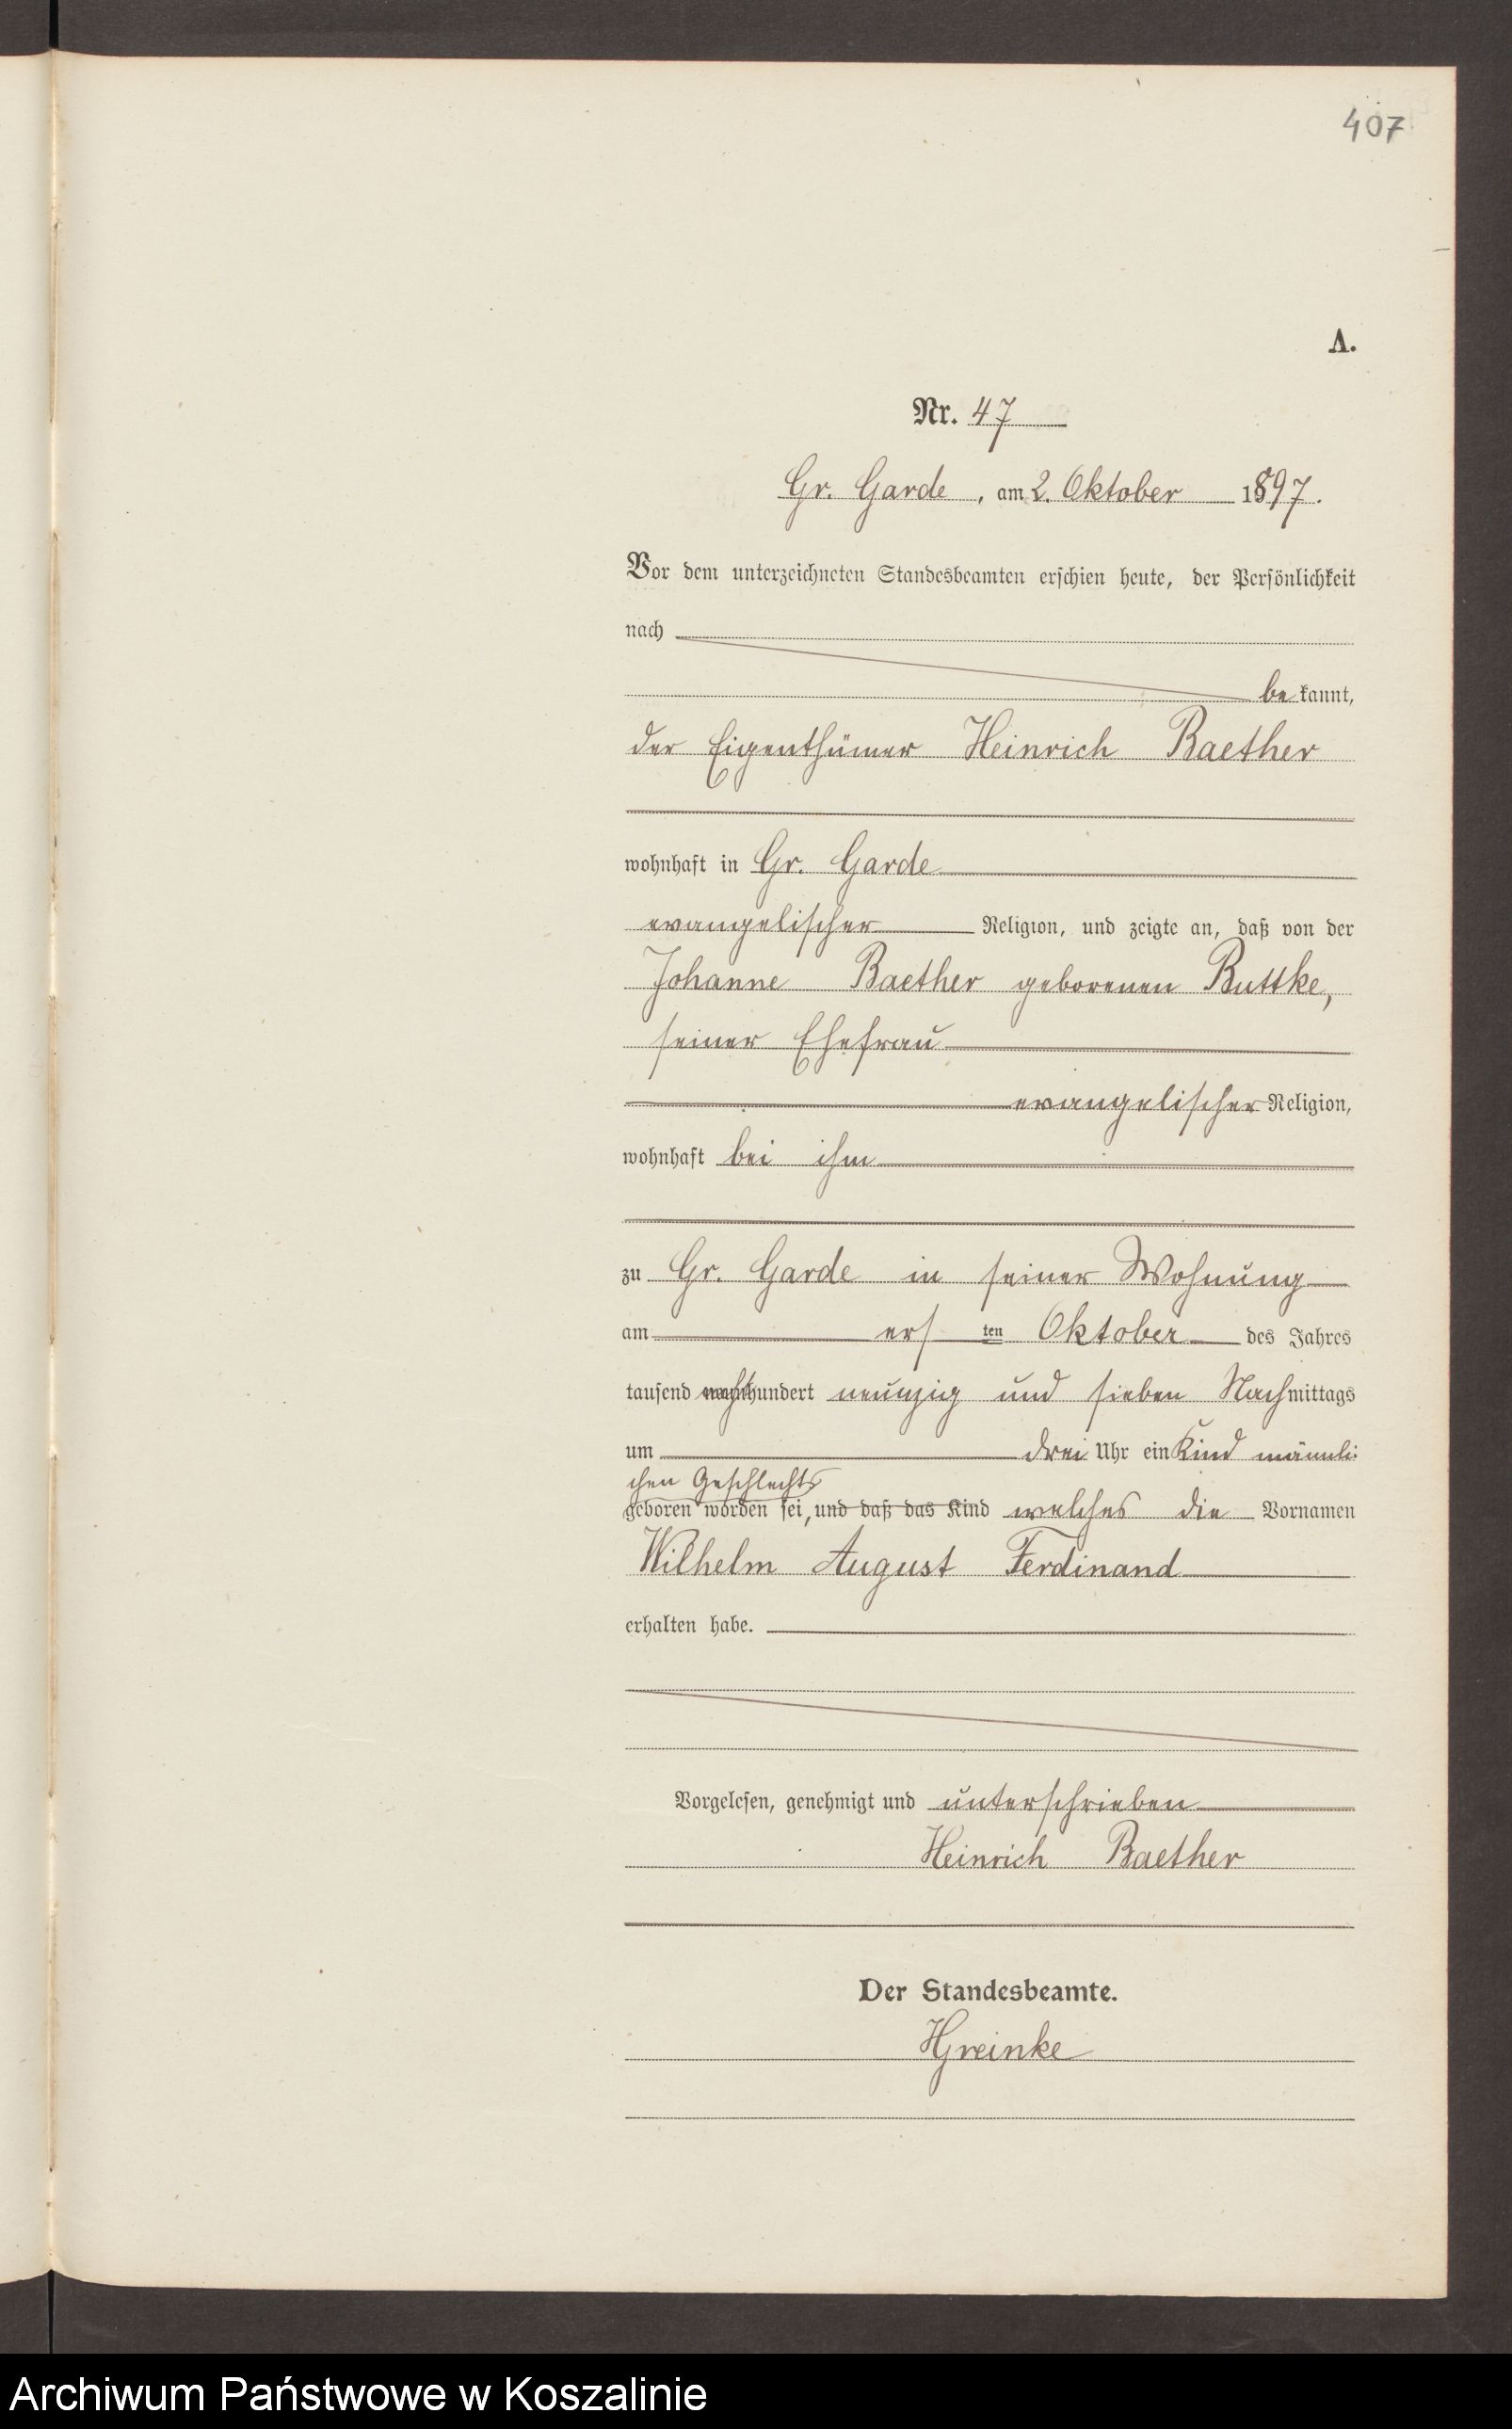 407
A.
Nr. 47
Gr. Garde, am 2. Oktober 1897.
Vor dem unterzeichneten Standesbeamten erschien heute, der Persönlichkeit
nach
be kannt,
der Eigenthümer Heinrich Baether
wohnhaft in Gr. Garde
evangelischer Religion, und zeigte an, daß von der
Johanne Baether geborenen Buttke,
seiner Ehefrau
evangelischer Religion,
wohnhaft bei ihm
zu Gr. Garde in seiner Wohnung
am ers ten Oktober des Jahres
tausend achthundert neunzig und sieben Nachmittags
um drei Uhr ein Kind männli-
chen Geschlechts
geboren worden sei, und daß das Kind welches die Vornamen
Wilhelm August Ferdinand
erhalten habe.
Vorgelesen, genehmigt und unterschrieben
Heinrich Baether
Der Standesbeamte.
HGreinke
Archiwum Państwowe w Koszalinie